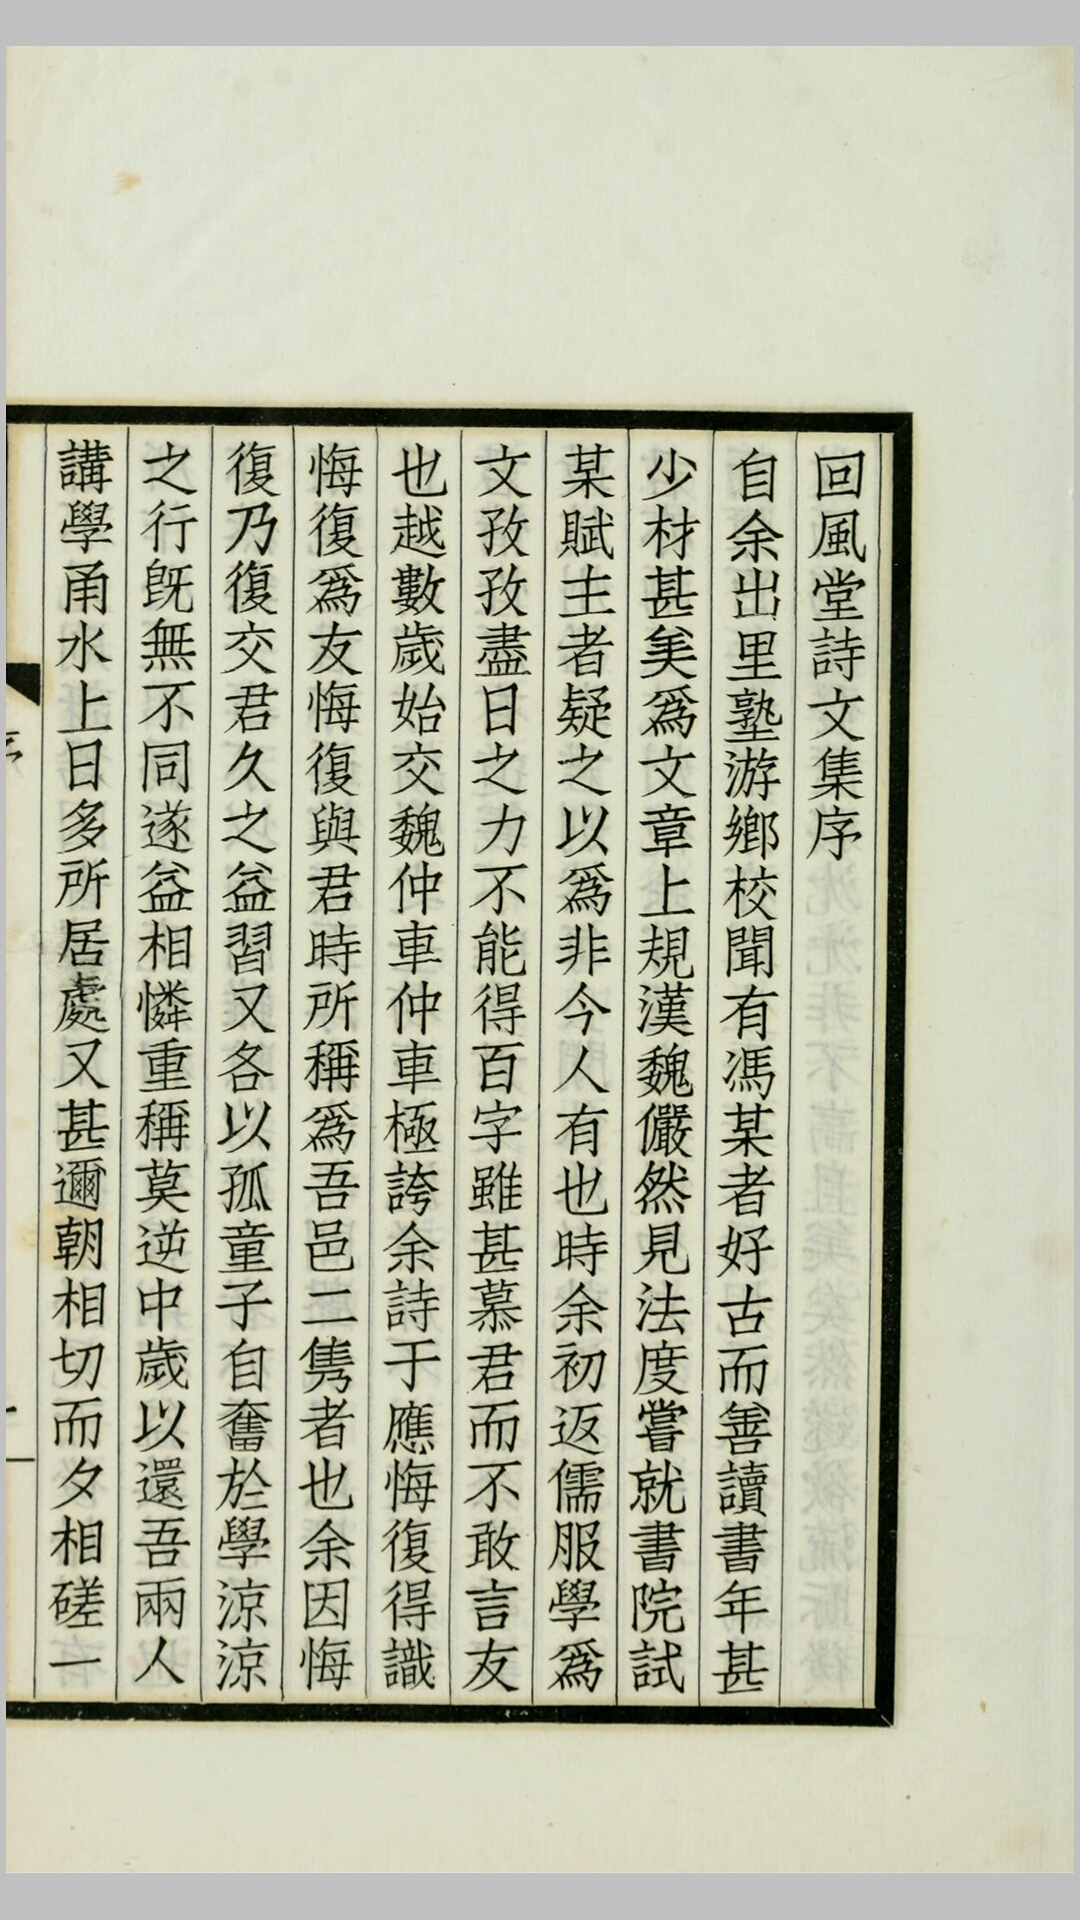 回風堂詩文集序
自余出里塾游鄉校聞有馮某者好古而善讀書年甚
少材甚美爲文章上規漢魏儼然見法度嘗就書院試
某賦主者疑之以爲非今人有也時余初返儒服學爲
文孜孜盡日之力不能得百字雖甚慕君而不敢言友
也越數歲始交魏仲車仲車極誇余詩于應悔復得識
悔復爲友悔復與君時所稱爲吾邑二雋者也余因悔
復乃復交君久之益習又各以孤童子自奮於學涼涼
之行旣無不同遂益相憐重稱莫逆中歲以還吾兩人
講學甬水上日多所居處又甚邇朝相切而夕相磋一